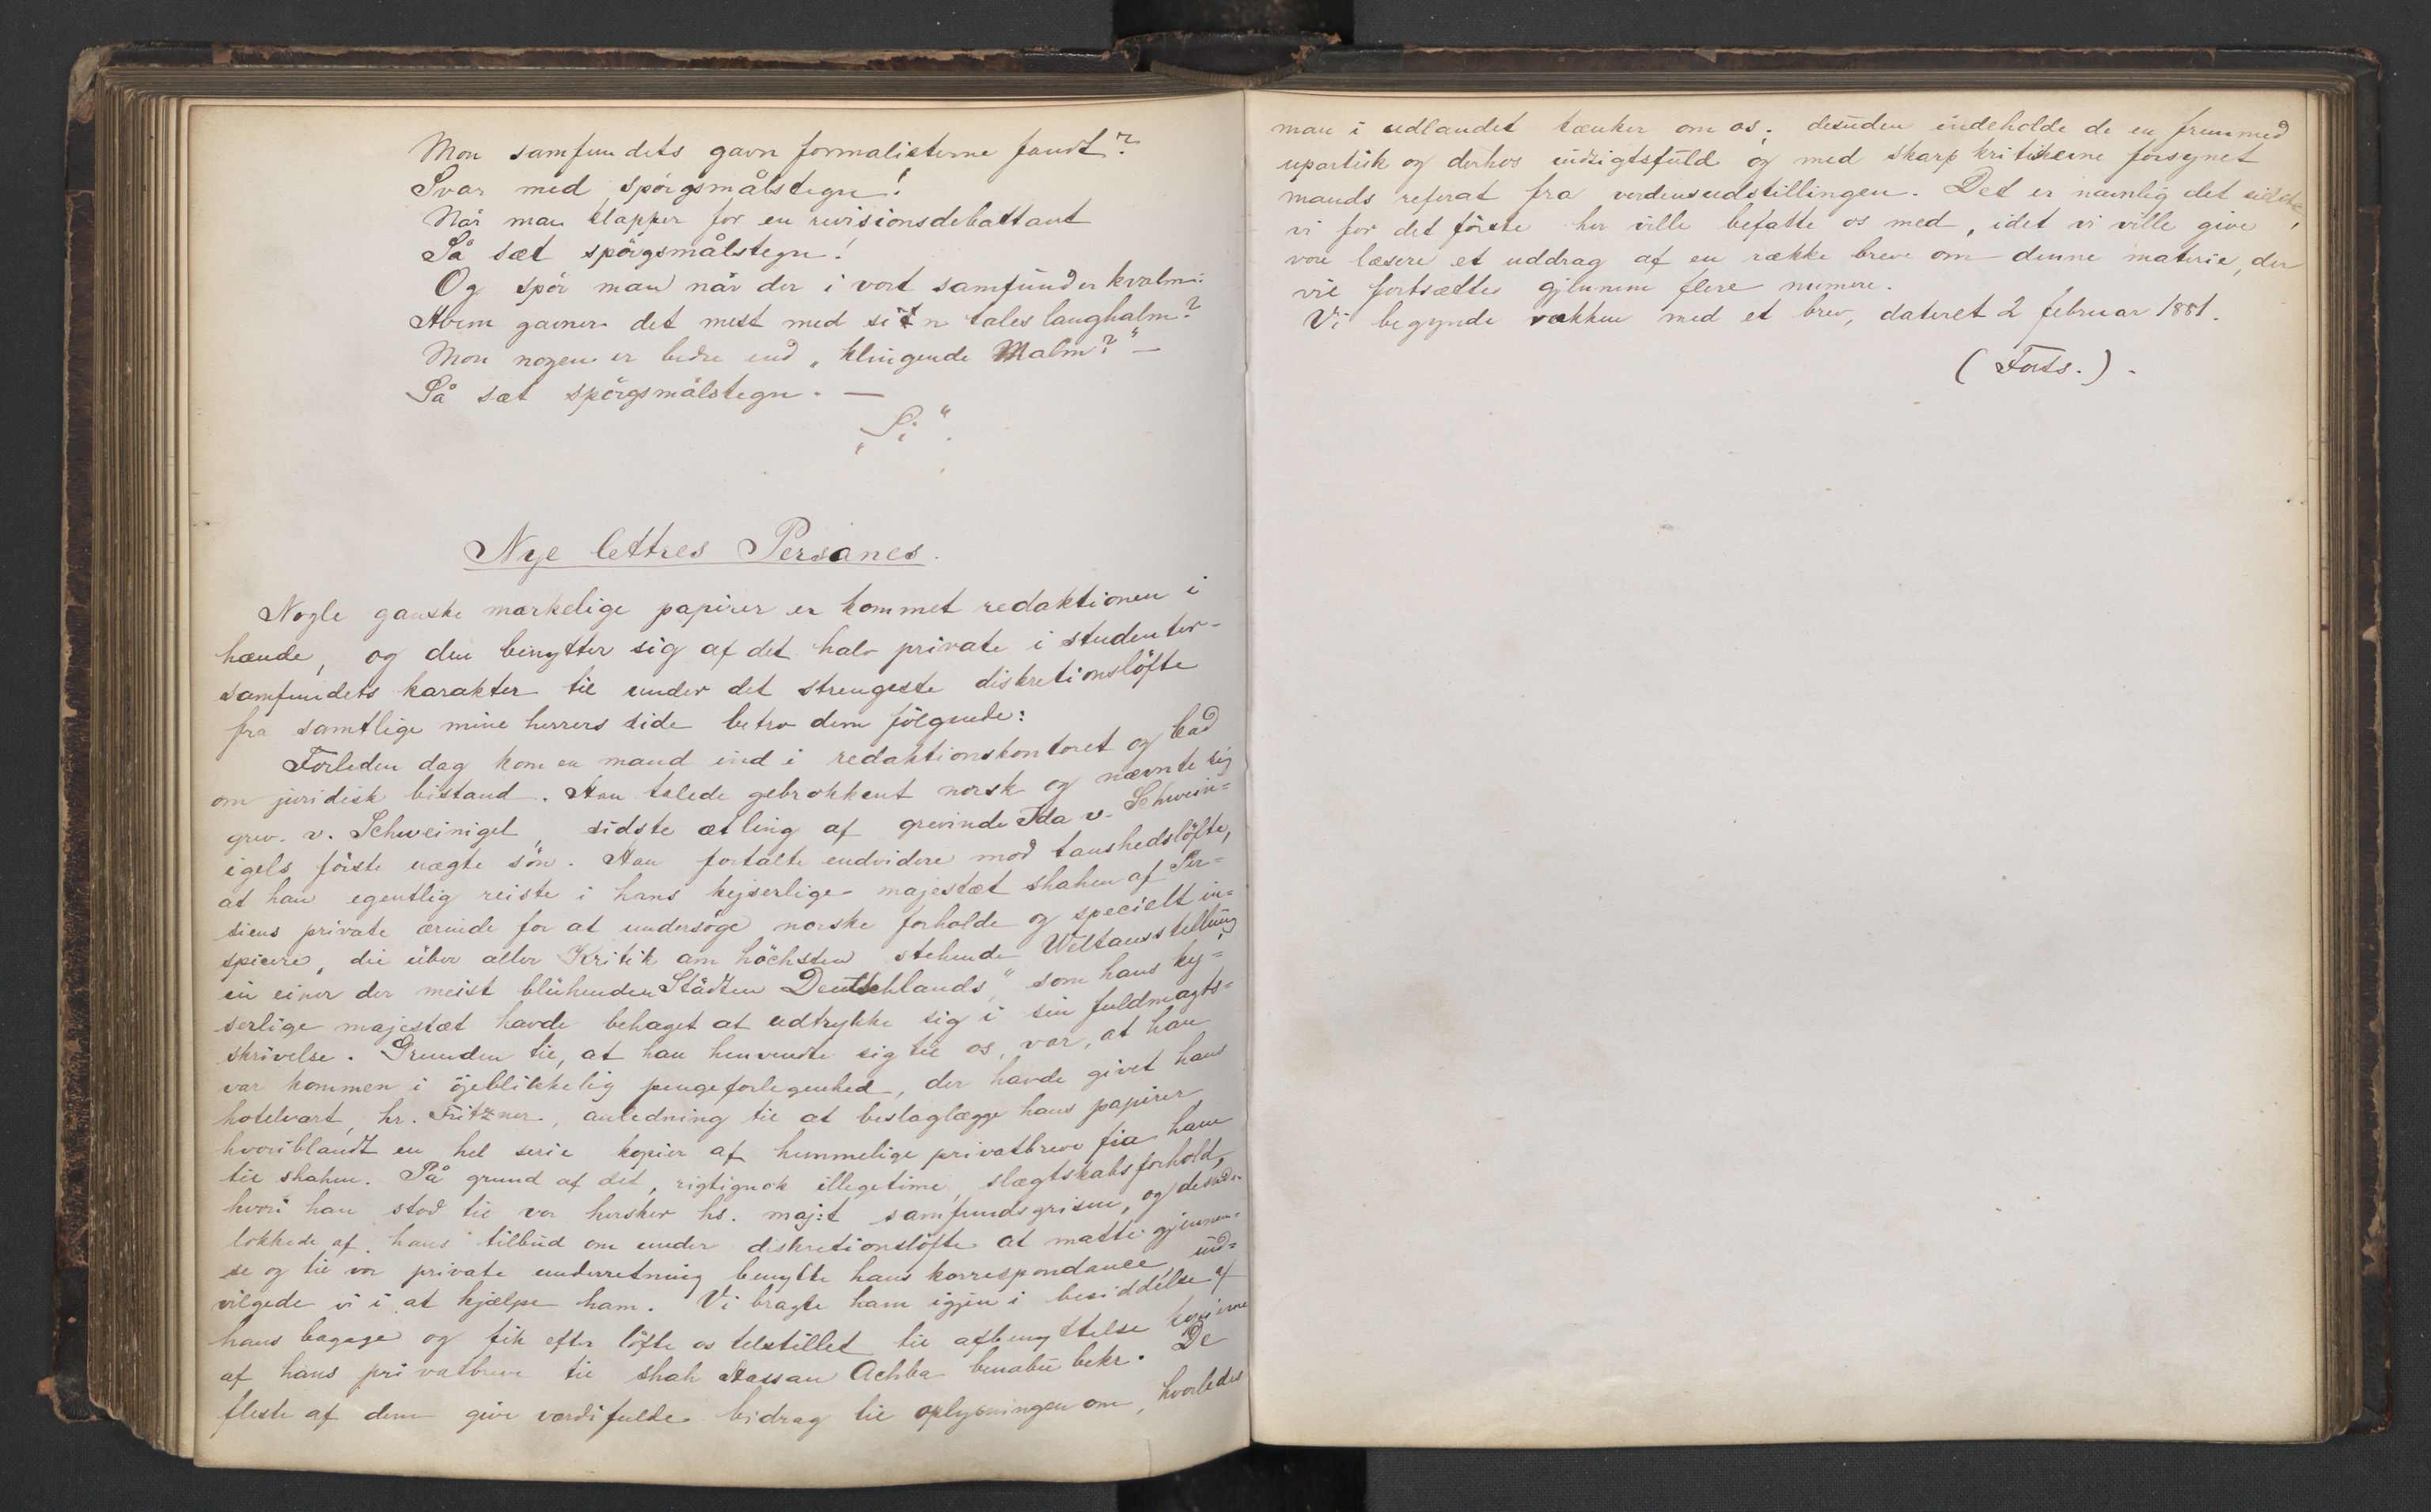 Mon samfundets gavn formalisterne fandt?
Svar med spörgsmålstegn!
Når man klapper for en revisionsdebattant
Så sæt spörgsmålstegn!
Og spör man når der i vort samfund er kvalm:
Hvem gavner det mest med sin tales langhalm?
Mon nogen er bedre end „klingende Malm?" —
Så sæt spörgsmålstegn. —
Nye lettres Persanes.
Nogle ganske mærkelige papirer er kommet redaktionen i
hænde, og den benytter sig af det halv private i studenter-
samfundets karakter til under det strengeste diskretionslöfte
fra samtlige mine herrers side betro dem fölgende:
Forleden dag kom en mand ind i redaktionskontoret og bad
om juridisk bistand. Han talede gebrokkent norsk og nævnte sig
grev. v. Schweinigel, sidste ætling af grevinde Ida v. Schwein=
igels förste uægte sön. Han fortalte endvidere mod taushedslöfte,
at han egentlig reiste i hans kejserlige majestæt shahen af Per=
siens private ærinde for at undersöge norske forholde og specielt in=
spicere „die über aller Kritik am höchsten stehende Weltausstellung
in einer der meist blühenden Städten Deutschlands," som hans key=
serlige majestæt havde behaget at udtrykke sig i sin fuldmagts=
skrivelse. Grunden til, at han henvendte sig til os, var, at han
var kommen i öjeblikkelig pengeforlegenhed, der havde givet hans
hotelvært, hr. Fritzner, anledning til at beslaglægge hans papirer
hvoriblandt en hel serie kopier af hemmelige privatbreve fra ham
til shahen. På grund af det, rigtignok illegetime, slægtskabsforhold,
hvori han stod til vor hersker hs. maj:t samfundsgrisen, og desuden
lokkede af hans tilbud om under diskretionslöfte at måtte gjennem=
se og til vor private underretning benytte hans korrespondance, ind=
vilgede vi i at hjælpe ham. Vi bragte ham igjen i besiddelse af
hans bagage og fik efter löfte os tilstillet til afbenyttelse kopierne
af hans privatbreve til shah Hassan Achba benabu bekr. De
fleste af dem give værdifulde bidrag til oplysningen om, hvorledes
man i udlandet tænker om os; desuden indeholde de en fremmed
upartisk og derhos indsigtsfuld og med skarp kritikevne forsynet
mands referat fra verdensudstillingen. Det er nemlig det sidste,
vi for det förste her ville befatte os med, idet vi ville give
vore læsere et uddrag af en række breve om denne materie, der
vil fortsættes gjennem flere numere.
Vi begynde rækken med et brev, dateret 2 februar 1881.
(Forts.).